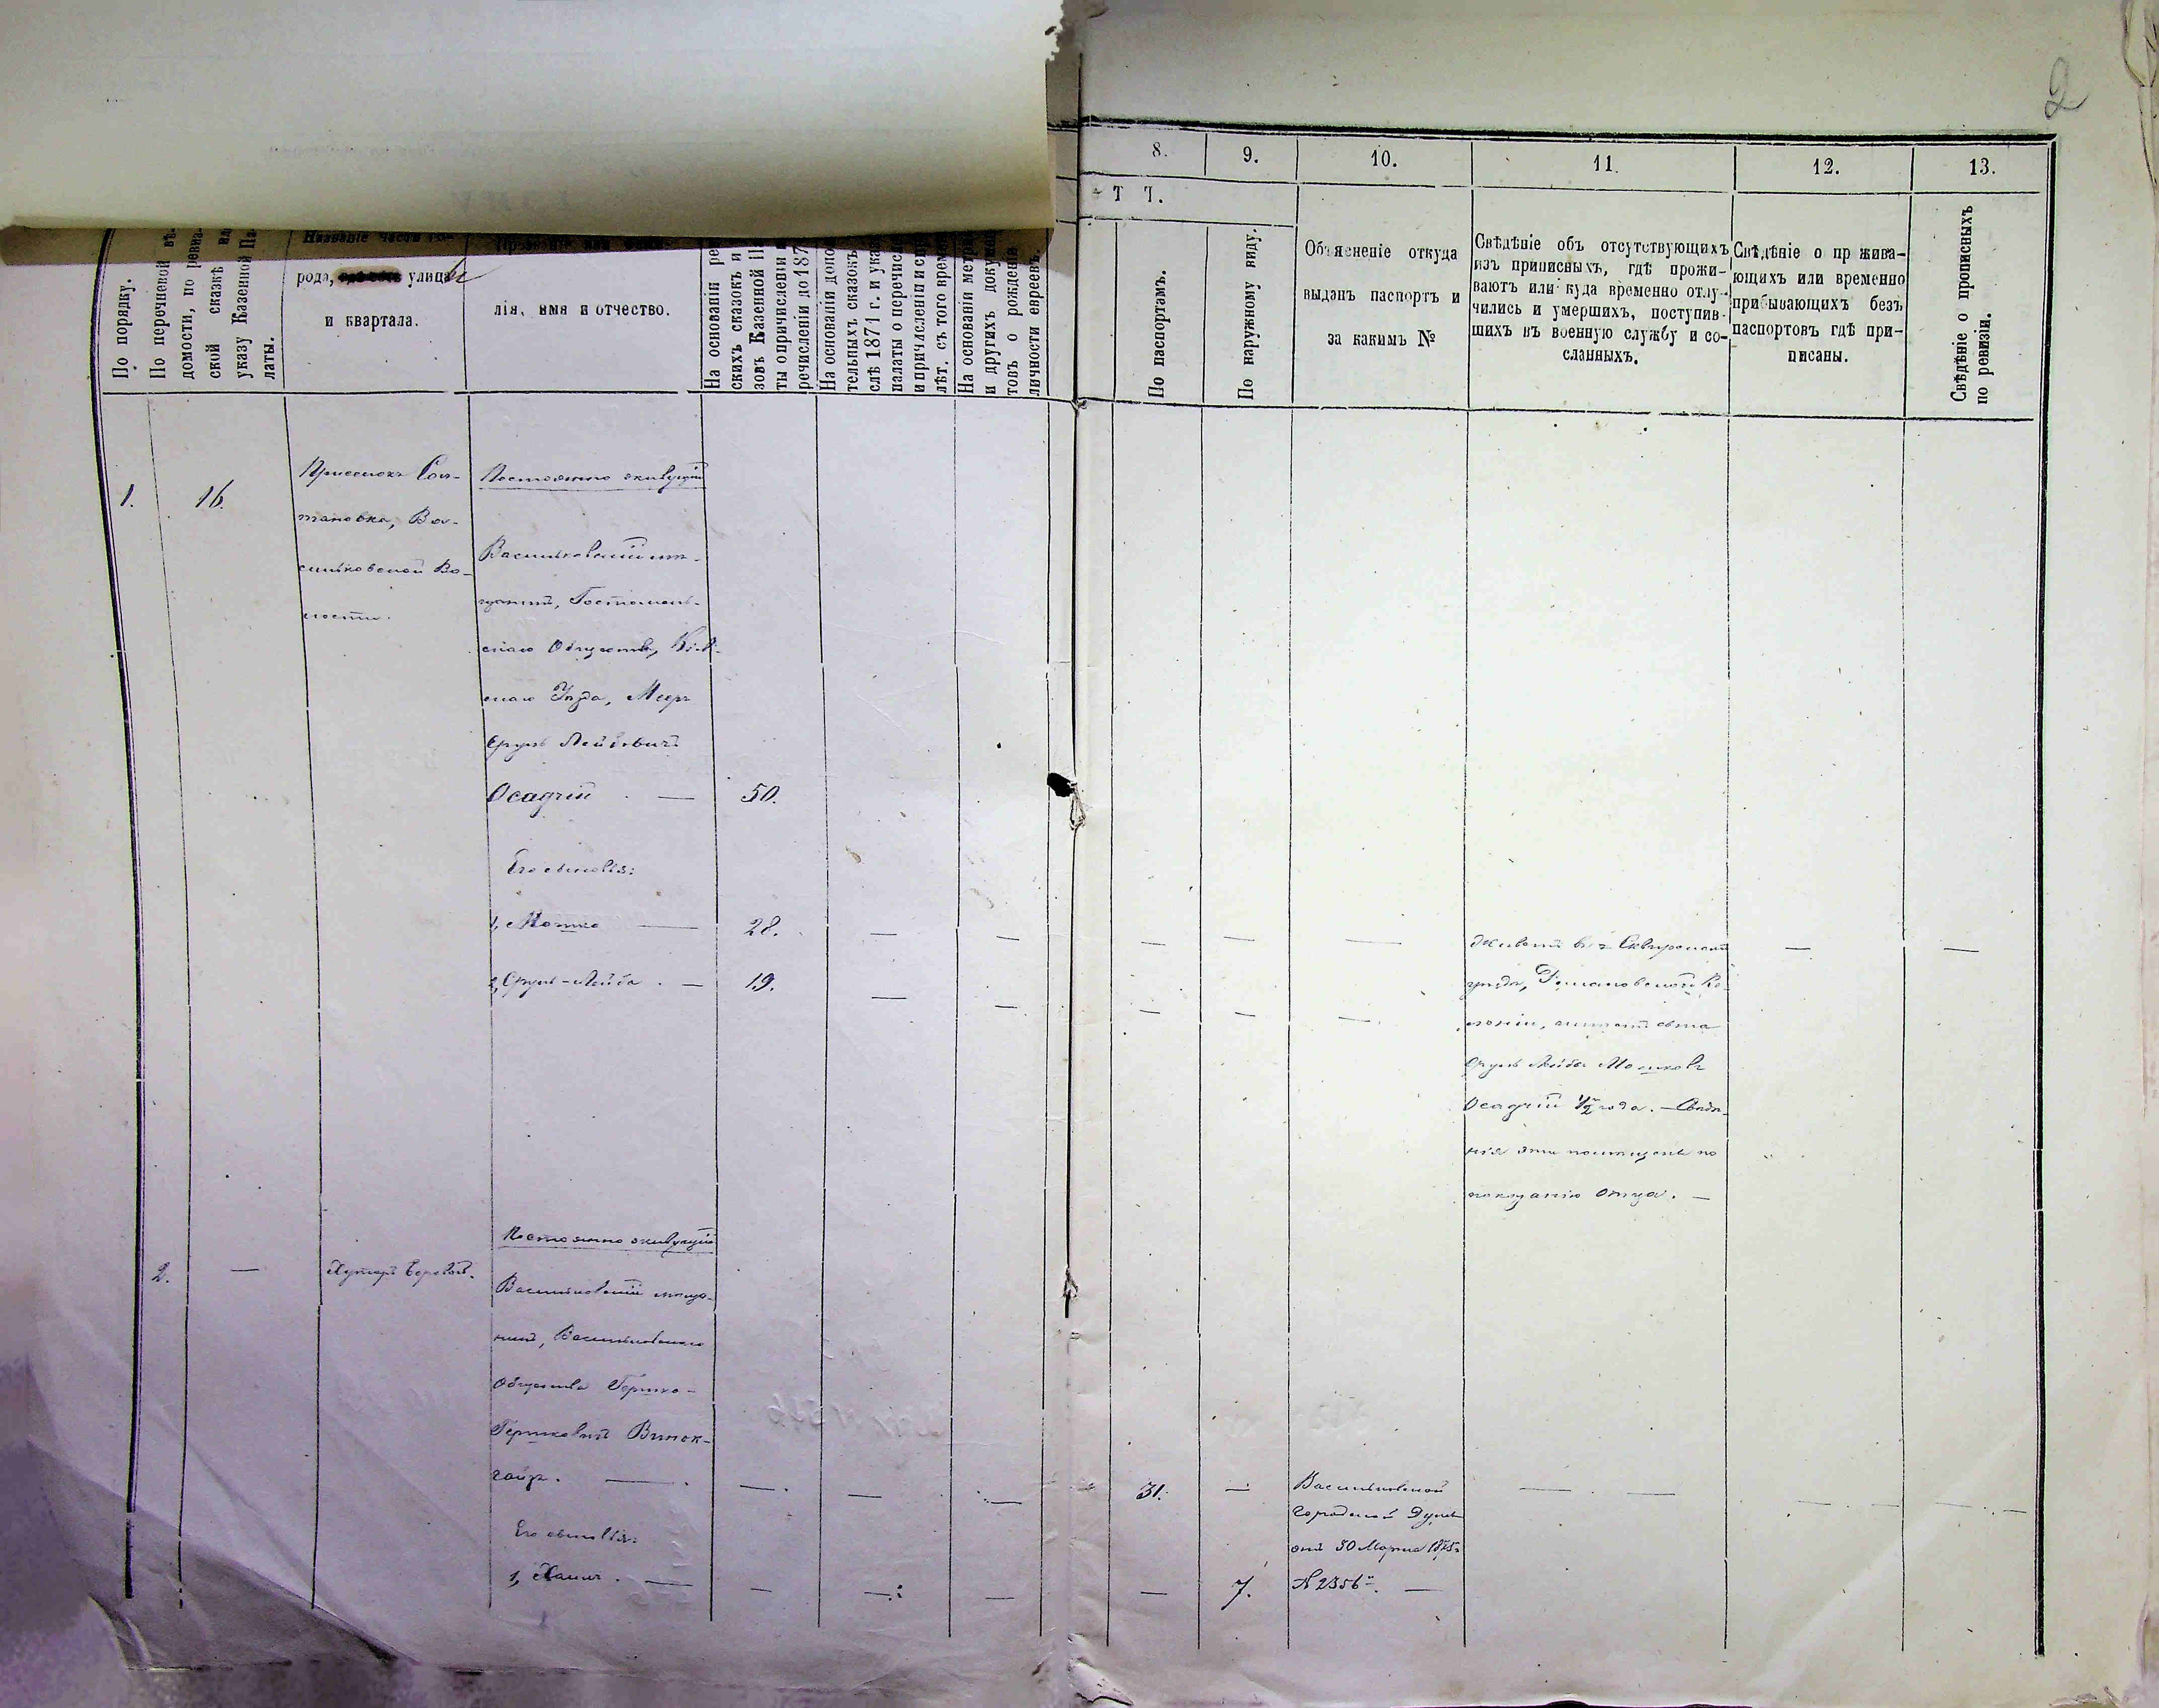 2
8.
9.
10.
11.
12.
13.
Т 7.
По порядку.
По перечневой вѣ-
домости, по ревиз-
ской сказкѣ ил
указу Казенной Па-
латы.
Названіе части го-
рода, улица
и квартала.
лія, имя и отчество.
На основаніи ре
скихъ сказокъ и
зовъ Казенной П
ты о причисленіи
речисленіи до 187
На основаніи допо
тельныхъ сказокъ
слѣ 1871 г. и ука
палаты о перечисл
и причисленіи и сч
лѣт. съ того врем
На основаніи метри
и другихъ докумен
товъ о рожденіи
личности евреевъ.
По паспортамъ.
По наружному виду.
Объясненіе откуда
выданъ паспортъ и
за какимъ №
Свѣдѣніе объ отсутствующихъ
изъ приписныхъ, гдѣ прожи-
ваютъ или куда временно отлу-
чились и умершихъ, поступив-
шихъ въ военную службу и со-
сланныхъ.
Свѣдѣніе о пр жива-
ющихъ или временно
прибывающихъ безъ
паспортовъ гдѣ при-
писаны.
Свѣдѣніе о прописныхъ
по ревизіи.
1.
16.
Приселокъ Сол-
тановка, Ва-
сильковской Во-
лости.
Постоянно живущій
Васильковскій мѣ-
щанинъ, Гостомель-
скаго Общества, Кіев-
скаго Уѣзда, Меер
Сруль Лейбовичъ
Осадчій — 50.
Его семейство:
1, Мошко — 28. — — — — —
2, Сруль-Лейба. — 19. — — — — —
Живетъ въ Сквирскомъ
уѣздѣ,
Сруль Лейба Мошковъ
Осадчій 1/2 года. — Свѣдѣ-
нія эти
показанію Отца. —
2.
—
Хуторъ
Постоянно живущій
Васильковскій мѣща-
нинъ, Васильковскаго
Общества Гершко-
Гершковичъ Винок-
—
31.
Васильковской
Городской Думы
отъ 30 Марта
№ 2356. —
Его семейство:
1, Хаимъ. — — — — — 7.